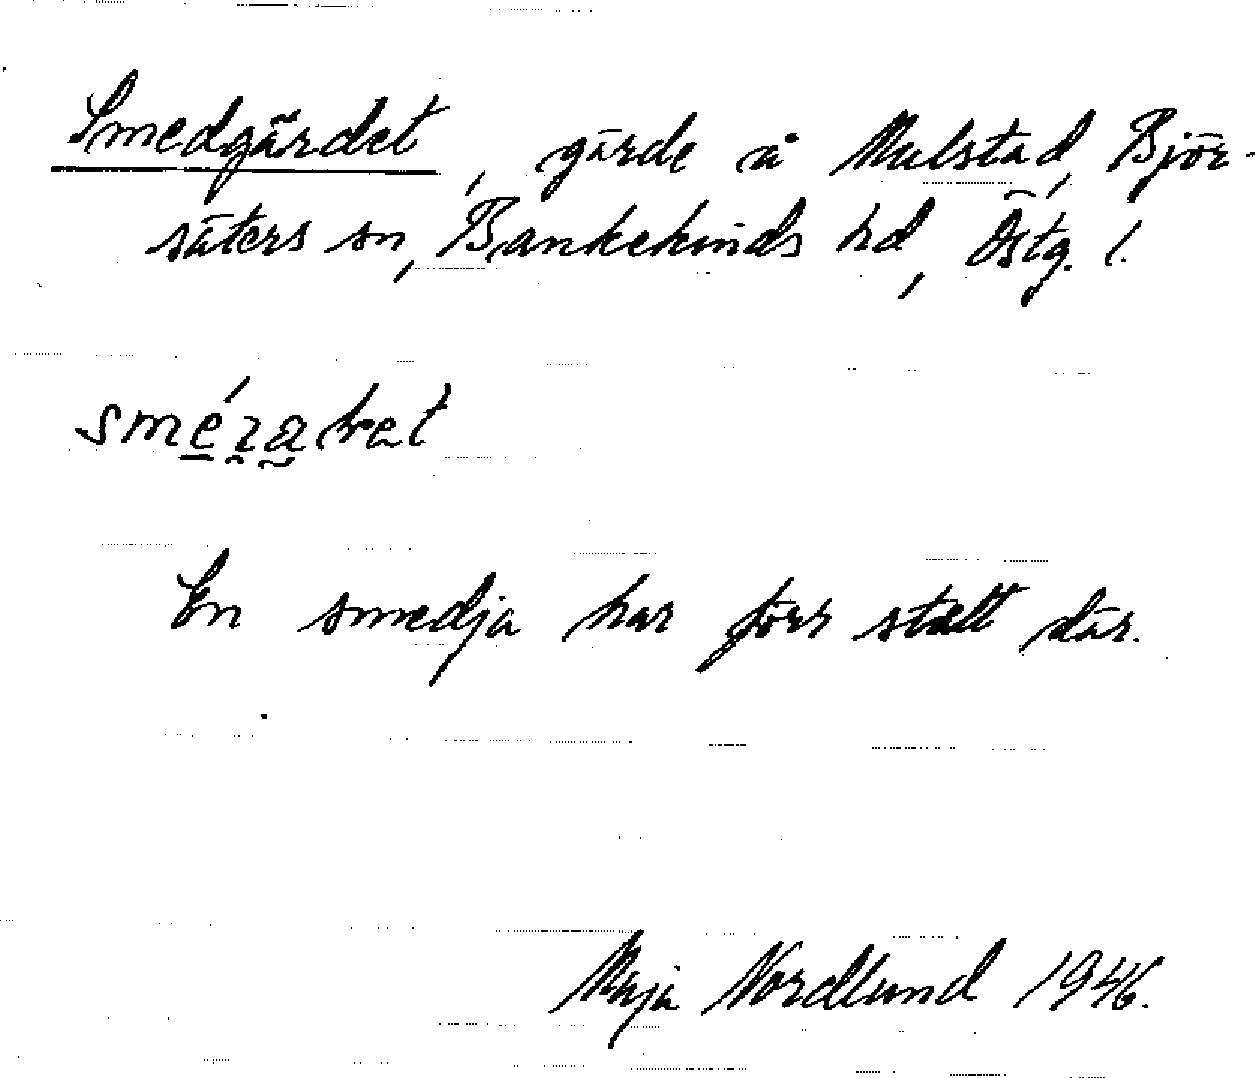 Smedgärdet, gärde å Mulstad, Björ-
säters sn, Bankekinds hd, Östg. l.
En smedja har förr stått där.
Maja Nordlund 1946.